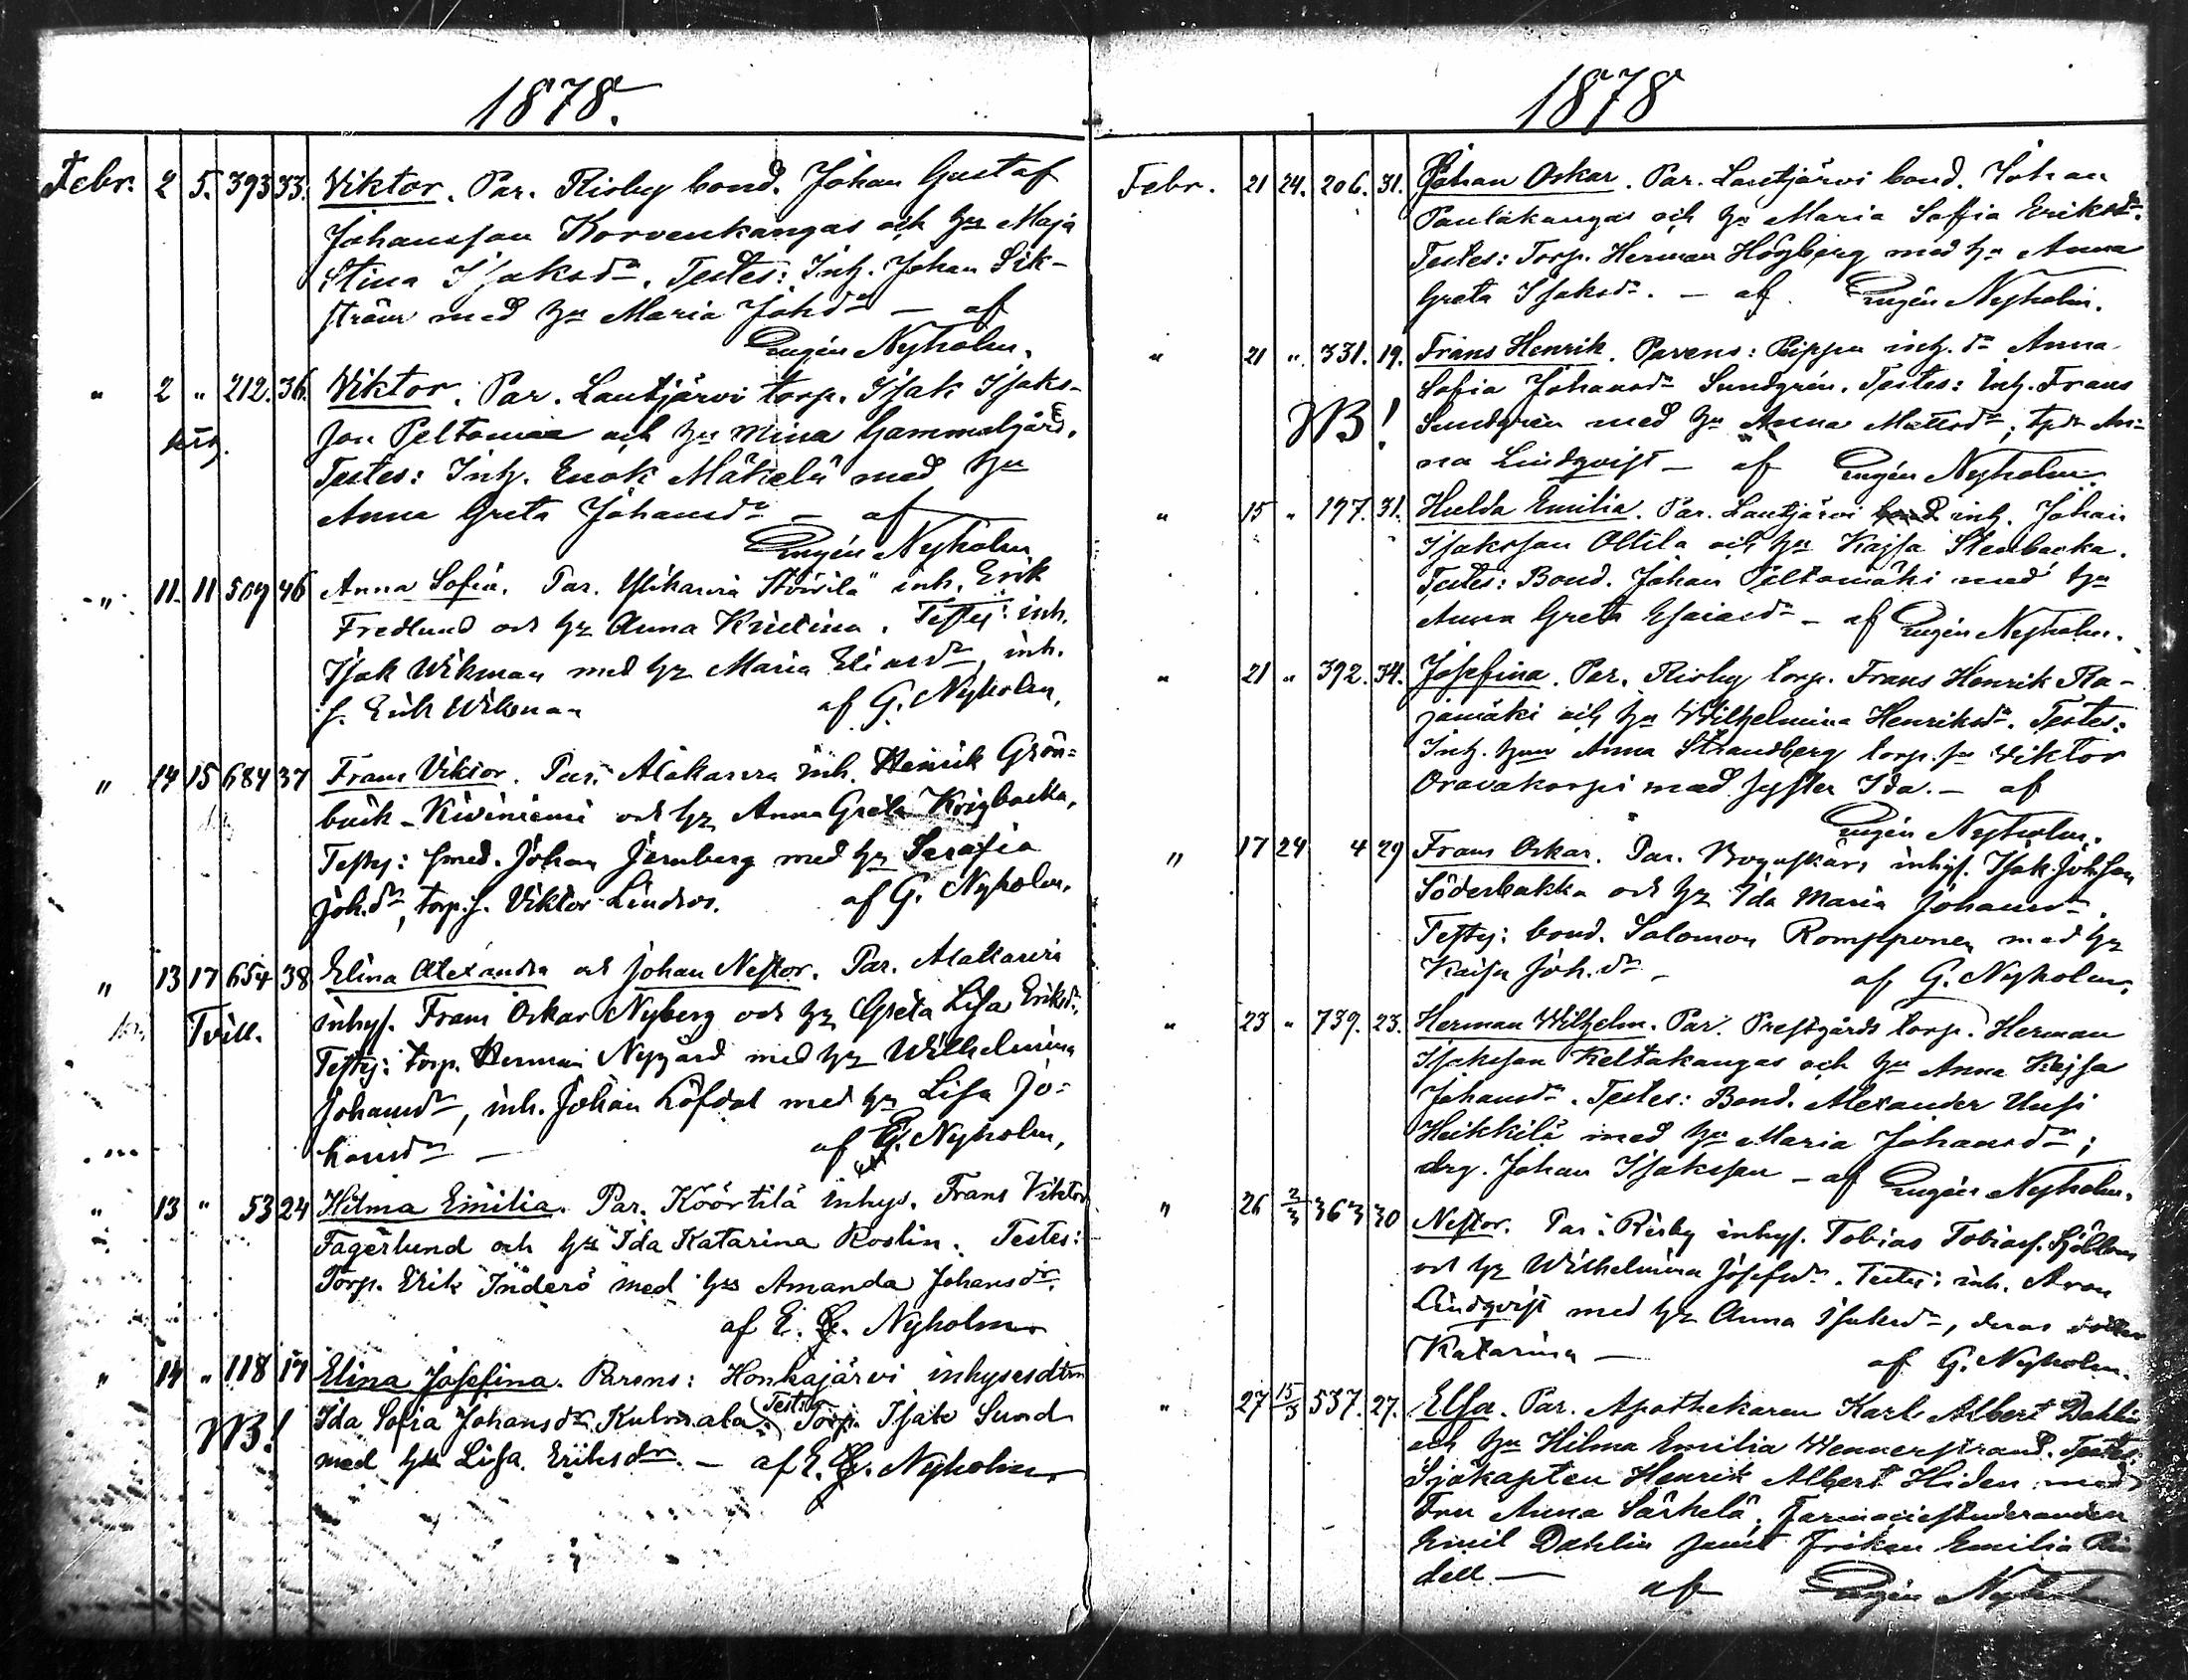 1878.
Febr. 2 5. 393 33. Viktor. Par. Risby bond. Johan Gustaf
Johansson Korvenkangas och hu Maja
Stina Isaksdr. Testes: Inh. Johan Sik-
ström med hu Maria Johdr — af
Eugén Nyholm.
" 2 " 212. 36. Viktor. Par. Lautjärvi torp. Isak Isaks-
son Peltomaa och hu Mina Gammelgård.
Testes: Inh. Enok Mäkelä med hu
Anna Greta Johansdr — af
Eugén Nyholm
" 11. 11 509 46 Anna Sofia. Par. Ylikarvia inh. Erik
Fredlund och hu Anna Kristina. Testes: inh.
Isak Wikman med hu Maria Eliasdr, inh.
s. Erik Wikman af G. Nyholm,
" 14 15 684 37 Frans Viktor. Par. Alakarvia inh. Henrik Grön-
bäck-Kiviniemi och hu Anna Greta Krigbacka,
Testes: smed. Johan Jernberg med hu Serafia
Joh.dr, torp.s. Viktor Lindros. af G. Nyholm,
" 13 17 654 38 Elina Alexandra och Johan Nestor. Par. Alakarvia
Tvill. inhys. Frans Oskar Nyberg och hu Greta Lisa Eriksdr.
Testes: torp. Herman Nygård med hu Wilhelmina
Johansdr, inh. Johan Löfdal med hu Lisa Jo-
hansdr — af G. Nyholm,
" 13 " 53 24 Hilma Emilia. Par. Köörtilä inhys. Frans Viktor
Fagerlund och hu Ida Katarina Roslin. Testes:
Torp. Erik Inderö med hu Amanda Johansdr.
af E. G. Nyholm
" 14 " 118 17 Elina Josefina. Parens: Honkajärvi inhysesdtrn
NB! Ida Sofia Johansdr Kulmala. Testes: Torp. Isak Sund
med hu Lisa Eriksdr. — af E. G. Nyholm
1878
Febr. 21 24. 206. 31. Johan Oskar. Par. Lautjärvi bond. Johan
Pantakangas och hu Maria Sofia Eriksdr.
Testes: Torp. Herman Högberg med hu Anna
Greta Isaksdr. — af Eugén Nyholm.
" 21 " 331. 19. Frans Henrik. Parens: inh. dr Anna
Sofia Johansdr Sundgrén. Testes: Inh. Frans
NB! Sundgrén med hu Anna Mattsdr; An-
na Lindqvist — af Eugén Nyholm.
" 15 " 197. 31. Hulda Emilia. Par. Lautjärvi bond. inh. Johan
Isaksson Ollila och hu Kajsa Stenbacka.
Testes: Bond. Johan Peltomäki med hu
Anna Greta Esaiasdr — af Eugén Nyholm.
" 21 " 392. 34. Josefina. Par. Risby torp. Frans Henrik Ra-
jamäki och hu Wilhelmina Henriksdr. Testes:
Inh. hun Anna Strandberg torp. sn Viktor
Oravakorpi med syster Ida. — af
Eugén Nyholm.
" 17 24 4 29 Frans Oskar. Par. inhys. Isak Johsson
Söderbakka och hu Ida Maria Johansdr.
Testes: bond. Salomon Rompponen med hu
Kaisa Joh.dr — af G. Nyholm,
" 23 " 739. 23. Herman Wilhelm. Par. Prestgårds torp. Herman
Isaksson Keltakangas och hu Anna Kajsa
Johansdr. Testes: Bond. Alexander Uusi
Heikkilä med hu Maria Johansdr;
drg. Johan Isaksson — af Eugén Nyholm.
" 26 2/3 363 30 Nestor. Par: Risby inhys. Tobias Tobiass. Sjöblom
och hu Wilhelmina Josefsdr. Testes: inh. Aron
Lindqvist med hu Anna Isaksdr, deras dotter
Katarina — af G. Nyholm.
" 27 15/3 537. 27. Elsa. Par. Apothekaren Karl Albert Dahlin
och hu Hilma Emilia Wennerstrand. Testes:
Sjökapten Henrik Albert Hiden med
Fru Anna Särkelä, Farmaciestuderanden
Emil Dahlin samt Fröken Emilia
dell — af Eugén Nyholm